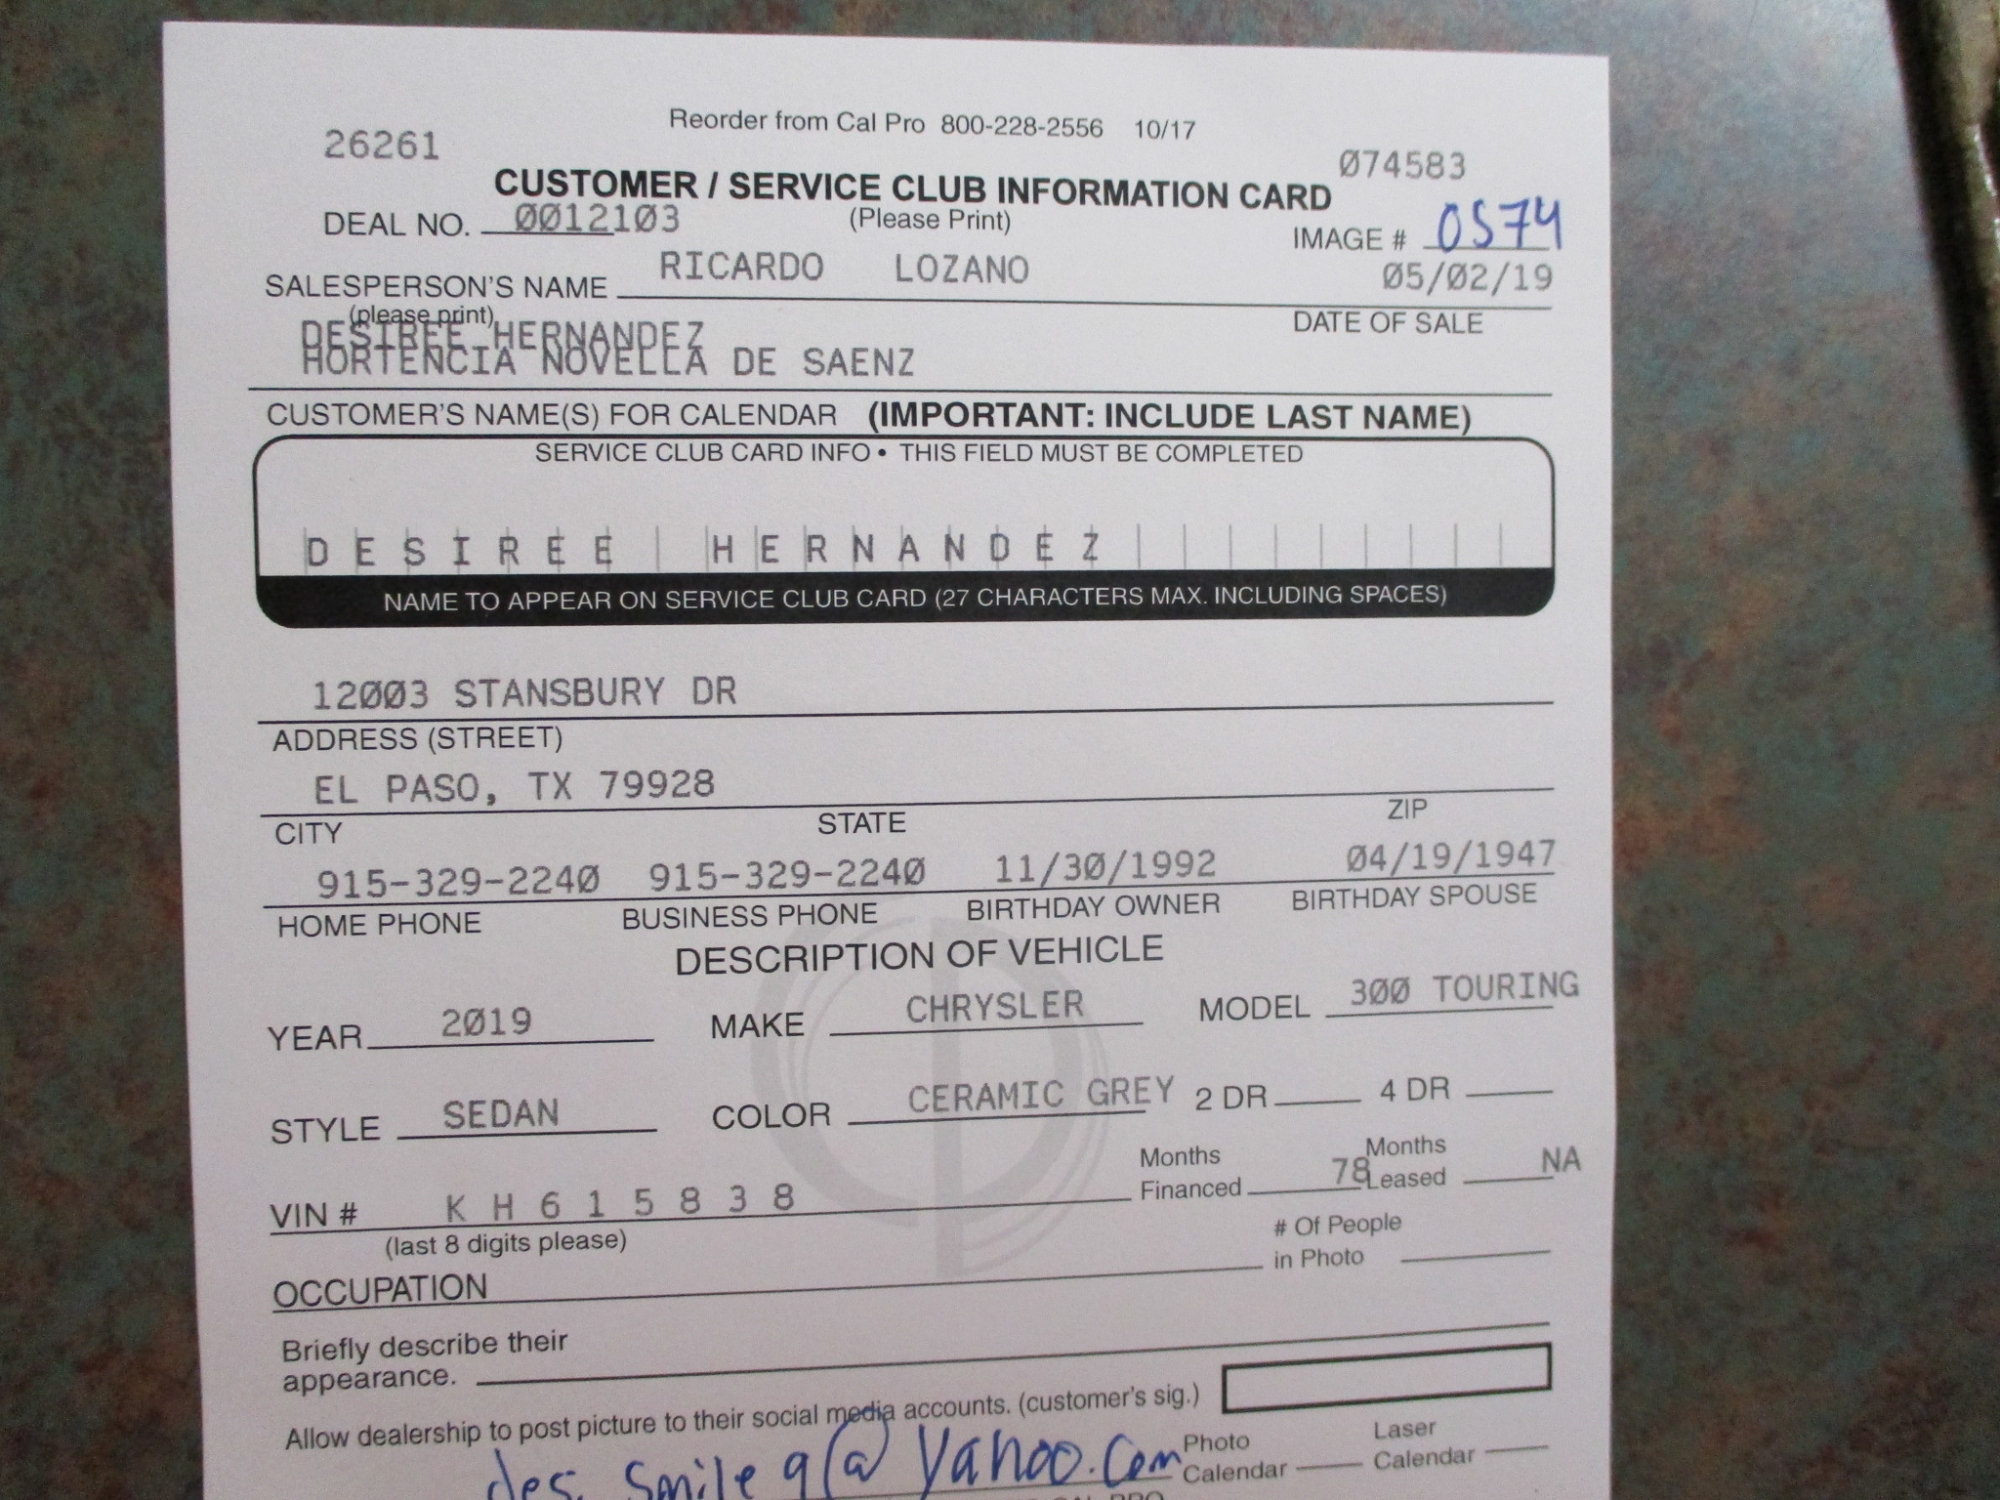 Reorder from Cal Pro 800-228-2556 10/17
26261 074583
CUSTOMER / SERVICE CLUB INFORMATION CARD
DEAL NO. 0012103 (Please Print) IMAGE # 0574
SALESPERSON'S NAME RICARDO LOZANO 05/02/19
(please print) DATE OF SALE
DESIREE HERNANDEZ
HORTENCIA NOVELLA DE SAENZ
CUSTOMER'S NAME(S) FOR CALENDAR (IMPORTANT: INCLUDE LAST NAME)
SERVICE CLUB CARD INFO • THIS FIELD MUST BE COMPLETED
DESIREE HERNANDEZ
NAME TO APPEAR ON SERVICE CLUB CARD (27 CHARACTERS MAX. INCLUDING SPACES)
12003 STANSBURY DR
ADDRESS (STREET)
EL PASO, TX 79928
CITY STATE ZIP
915-329-2240 915-329-2240 11/30/1992 04/19/1947
HOME PHONE BUSINESS PHONE BIRTHDAY OWNER BIRTHDAY SPOUSE
DESCRIPTION OF VEHICLE
YEAR 2019 MAKE CHRYSLER MODEL 300 TOURING
STYLE SEDAN COLOR CERAMIC GREY 2 DR 4 DR
VIN # KH615838 Months Financed 78 Months Leased NA
(last 8 digits please)
OCCUPATION # Of People in Photo
Briefly describe their
appearance.
Allow dealership to post picture to their social media accounts. (customer's sig.)
des.smile9@yahoo.com Photo Calendar Laser Calendar